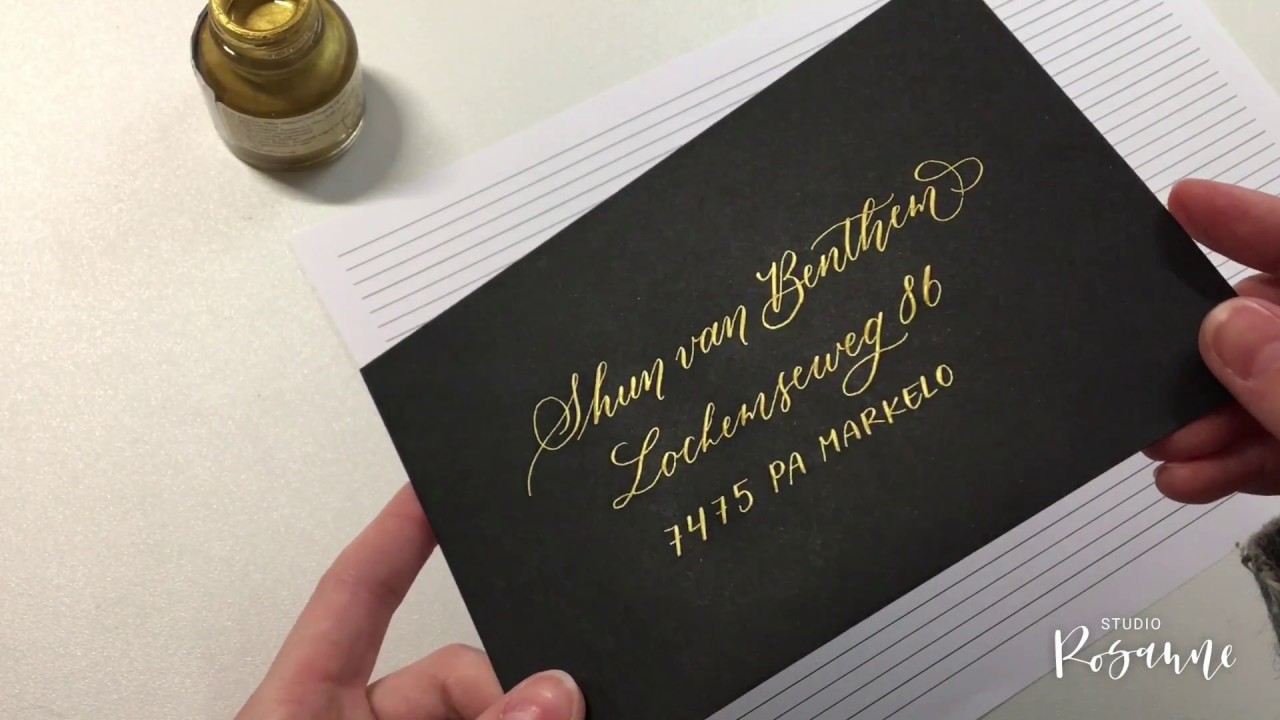 Shun van Benthem
Lochemseweg 86
7475 PA MARKELO
STUDIO
Rosanne